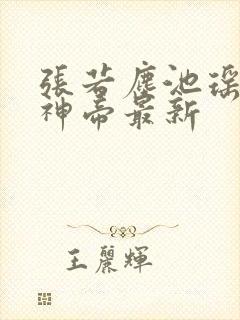 張若塵池瑤
神帝最新
王麗輝